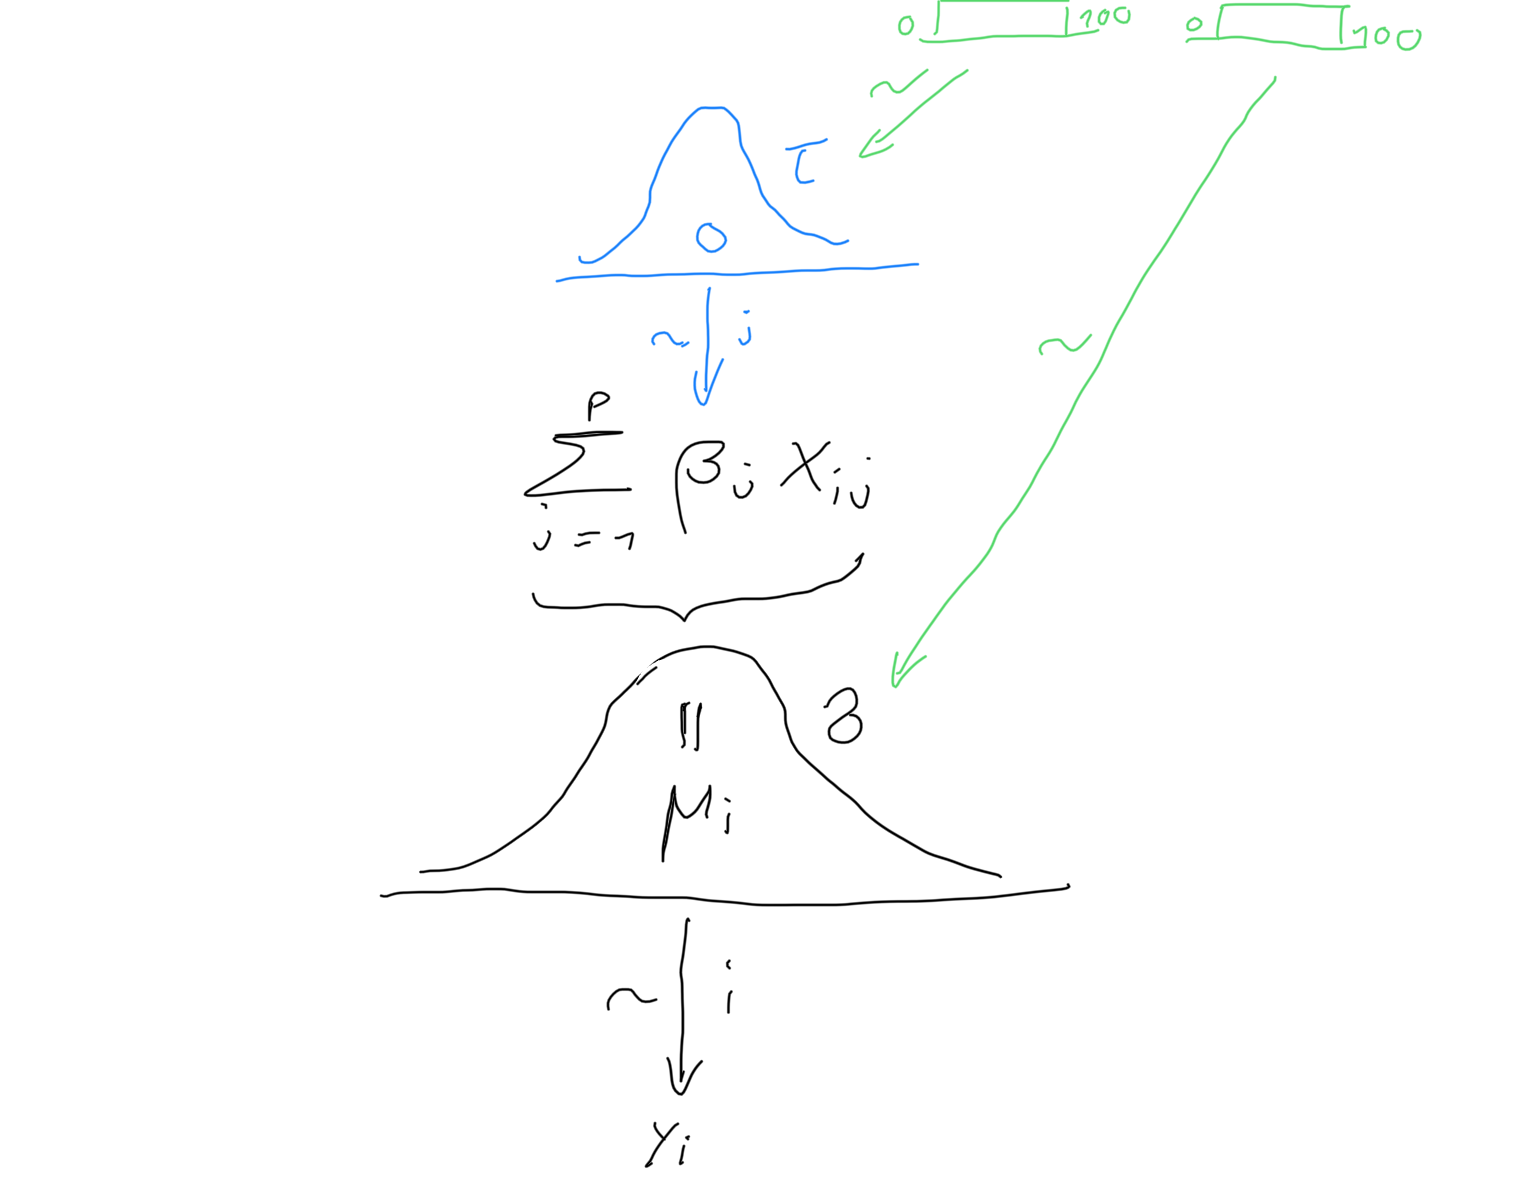 0 100 0 100
~
τ
0
~ j
~
p
∑ β_j X_ij
j = 1
||
μ_i
~ i
y_i